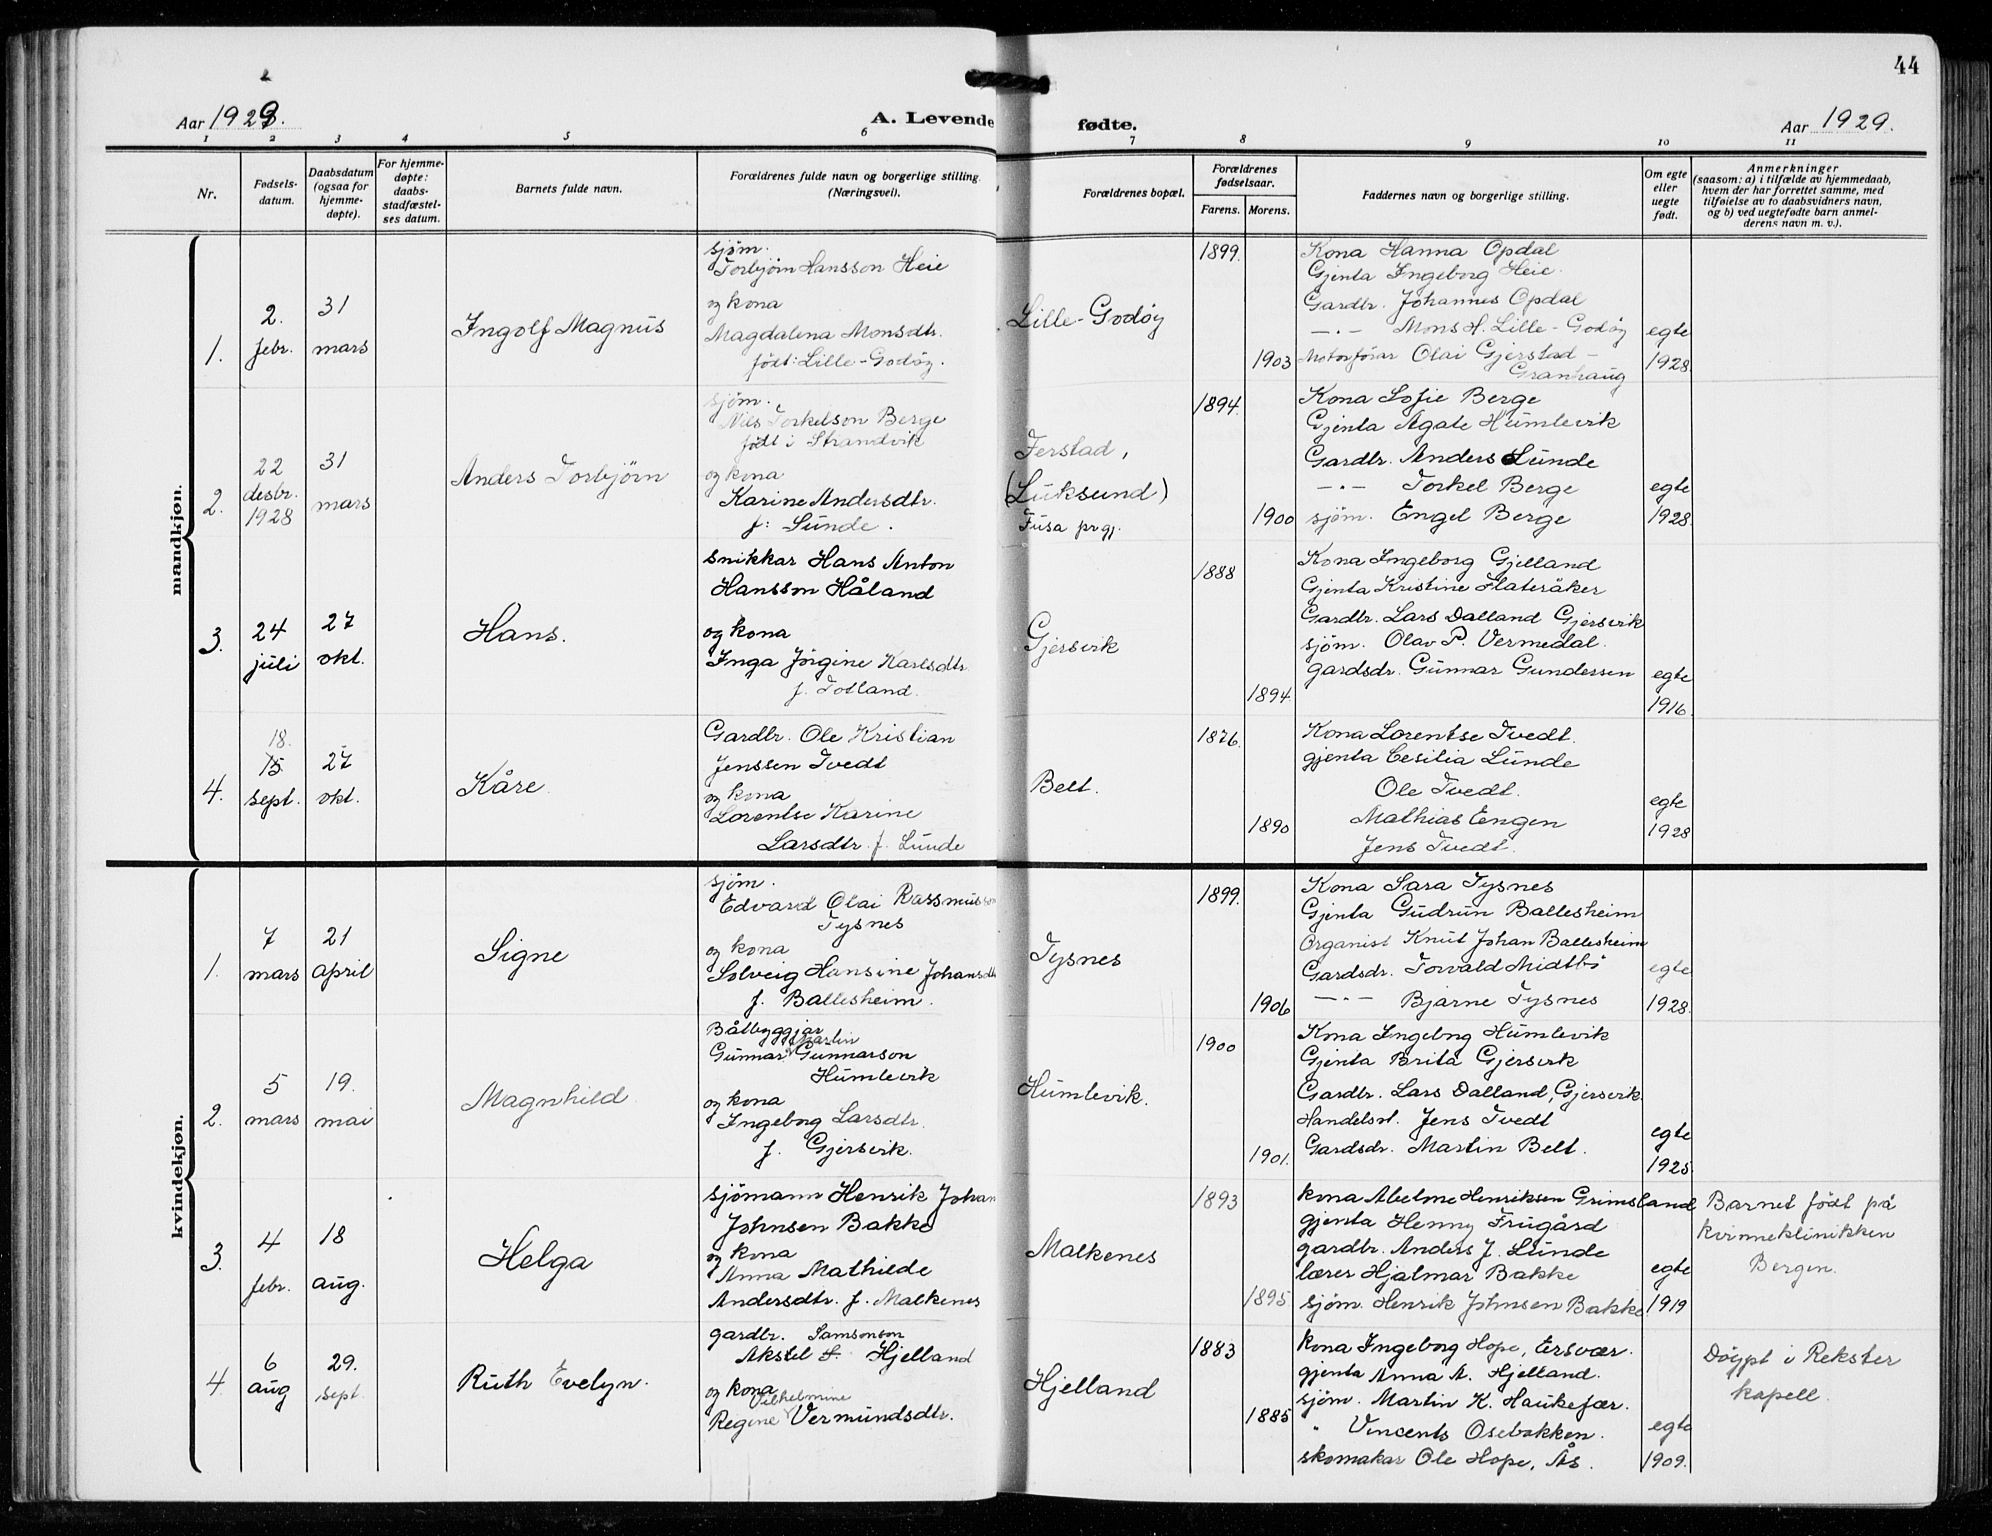 44
Aar 1929.
A. Levende fødte.
Aar 1929.
1 2 3 4 5 6 7 8 9 10 11
Nr.
Fødsels-
datum.
Daabsdatum
(ogsaa for
hjemme-
døpte).
For hjemme-
døpte:
daabs-
stadfæstel-
ses datum.
Barnets fulde navn.
Forældrenes fulde navn og borgerlige stilling.
(Næringsvei).
Forældrenes bopæl.
Forældrenes
fødselsaar.
Farens. Morens.
Faddernes navn og borgerlige stilling.
Om egte
eller
uegte
født.
Anmerkninger
(saasom: a) i tilfælde av hjemmedaab,
hvem der har forrettet samme, med
tilføielse av to daabsvidners navn,
og b) ved uegtefødte barn anmel-
derens navn m. v.).
mandkjøn.
1.
2.
febr.
31
mars
Ingolf Magnus
sjøm.
Torbjørn Hansson Heie
og kona
Magdalena Monsdtr.
født: Lille-Godøy.
Lille-Godøy
1899.
1903
Kona Hanna Opdal
Gjenta Ingeborg Heie
Gardbr. Johannes Opdal
—〃— Mons H. Lille-Godøy
Motorførar Olai Gjerstad-
Granhaug
egte
1928.
2.
22
desbr.
1928
31
mars
Anders Torbjørn
sjøm.
Nils Torkelson Berge
født i Strandvik
og kona
Karine Andersdtr.
f: Lunde.
Ferstad,
(Luksund)
Fusa prgj.
1894.
1900
Kona Sofie Berge
Gjenta Agate Humlevik
Gardbr. Anders Lunde
—〃— Torkel Berge
sjøm. Engel Berge
egte
1928.
3.
24
juli
27
okt.
Hans.
snikkar Hans Anton
Hansson Håland
og kona
Inga Jørgine Karlsdtr.
f. Totland.
Gjersvik
1888
1894.
Kona Ingeborg Gjelland
Gjenta Kristine Flateråker
Gardbr. Lars Dalland Gjersvik
sjøm. Olav P. Vermedal.
gardsdr. Gunnar Gundersen
egte
1916.
4.
18.
15
sept.
27
okt.
Kåre.
Gardbr. Ole Kristian
Jenssen Tvedt
og kona
Lorentse Karine
Larsdtr. f. Lunde
Belt.
1876.
1890
Kona Lorentse Tvedt.
gjenta Cesilia Lunde
Ole Tvedt.
Mathias Engen
Jens Tvedt.
egte
1928
kvindekjøn.
1.
7
mars
21
april
Signe
sjøm.
Edvard Olai Rassmusson
Tysnes
og kona
Solveig Hansine Johansdtr
f. Ballesheim.
Tysnes
1899.
1906
Kona Sara Tysnes
Gjenta Gudrun Ballesheim
Organist Knut Johan Ballesheim
Gardsdr. Torvald Midtbø
—〃— Bjarne Tysnes
egte
1928.
2.
5
mars
19.
mai
Magnhild
Båtbyggjar
Martin
Gunnar Gunnarson
Humlevik
og kona
Ingeborg Larsdtr.
f. Gjersvik.
Humlevik.
1900
1901.
Kona Ingebrg Humlevik
Gjenta Brita Gjersvik
Gardbr. Lars Dalland, Gjersvik.
Handelsst. Jens Tvedt
Gardsdr. Martin Belt.
egte
1925.
3.
4
febr.
18
aug.
Helga
sjømann Henrik Johan
Johnsen Bakke
og kona
Anna Mathilde
Andersdtr. f. Malkenes
Malkenes
1893
1895
kona Abelone Henriksen Grimsland
gjenta Henny Frugård
gardbr. Anders J. Lunde
lærer Hjalmar Bakke
sjøm. Henrik Johnsen Bakke
egte
1919
Barnet født på
kvinneklinikken
Bergen.
4.
6
aug
29.
sept.
Ruth Evelyn.
gardbr. Samsonson
Akstel S. Hjelland
og kona
Vilhelmine
Regine Vermundsdtr.
Hjelland
1883
1885
kona Ingeborg Hope, Ersvær.
gjenta Anna A. Hjelland.
sjøm. Martin K. Haukefær.
" Vincents Osebakken.
skomakar Ole Hope, Ås.
egte
1909.
Døypt i Rekster
kapell.